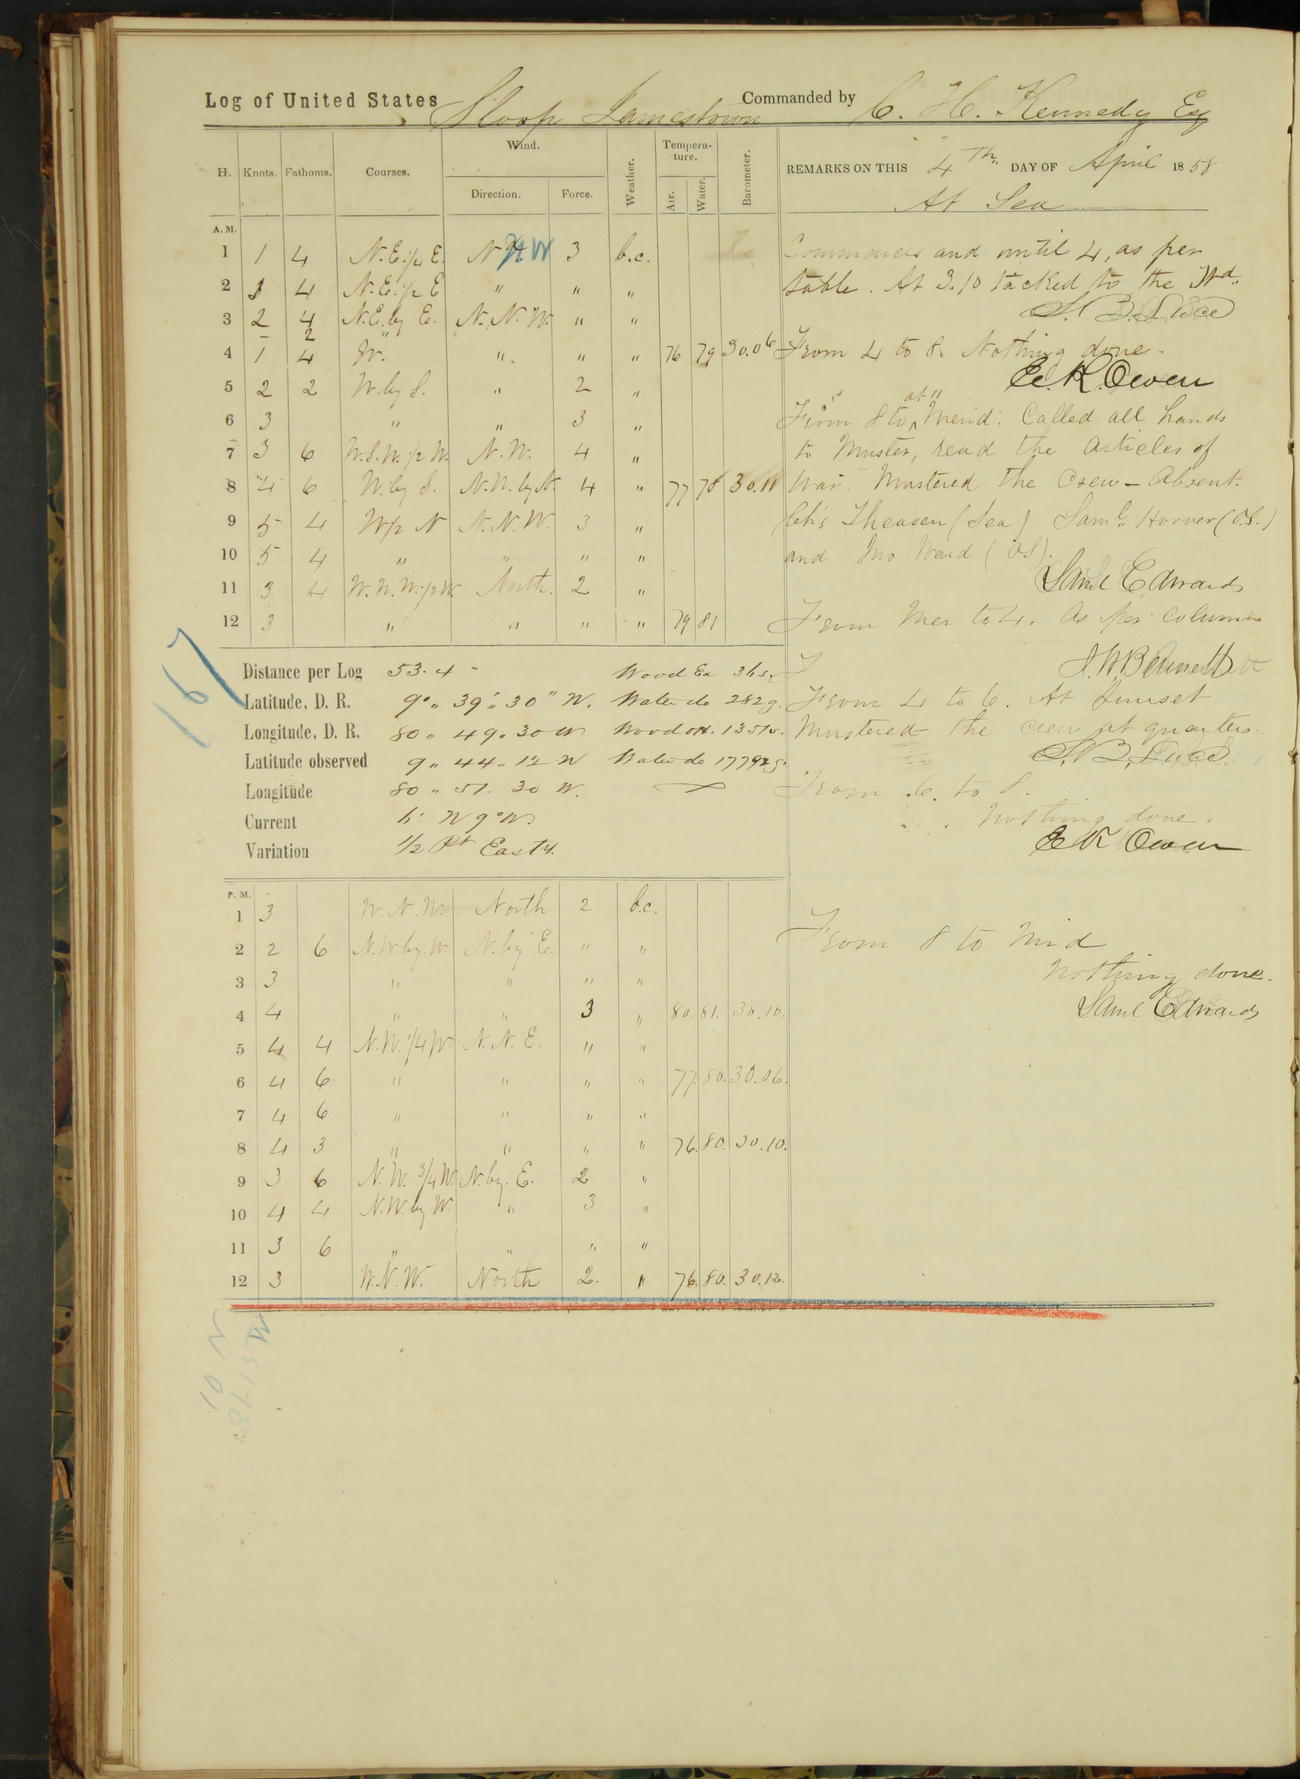 Log of United States Sloop Jamestown Commanded by C. H. Kennedy Esq
H. Knots. Fathoms. Courses. Wind. Direction. Force. Weather. Tempera-ture. Air. Water. Barometer.
REMARKS ON THIS 4th. DAY OF April 1858
At Sea
A. M.
1 1 4 N.E. 1/2 E. N N W 3 b.c.
2 3 4 N.E. 1/2 E " " "
3 2 4 N.E. by E. N.N.W. " "
2 "
4 1 4 W. " " " 76 79 30.06
5 2 2 W. by S. " 2 "
6 3 " " 3 "
7 3 6 W.S.W. 1/2 W. N.W. 4 "
8 4 6 W. by S. N.W. by N. 4 " 77 78 30.11
9 5 4 W 1/2 N N.N.W. 3 "
10 5 4 " " " "
11 3 4 W.N.W. 1/2 W. North. 2 "
12 3 " " " " 79 81
Commences and until 4, as per
table. At 3.10 tacked to the Wd.
S. B. Luce
From 4 to 8. Nothing done.
E. K. Owen
" at "
From 8 to Merid: Called all hands
to Muster, read the Articles of
War. Mustered the Crew - Absent.
(Sea) Saml. Hoover (O.S.)
and Jno Ward (O.S).
Saml Edwards
From Mer to 4. As per columns
J. W. Bennett
From 4 to 6. At Sunset
Mustered the crew at quarters.
S. B. Luce.
From 6. to 8.
Nothing done.
E K Owen
From 8 to Mid
Nothing done.
Saml Edwards
167
Distance per Log 53.4 Wood Ex 36 s.
Latitude, D. R. 9° " 39' " 30" N. Water do 282 g.
Longitude, D. R. 80 " 49 " 30 W Wood OH. 1351 s.
Latitude observed 9 " 44 " 12 N Water do 17792 g.
Longitude 80 " 51. 30 W.
Current
Variation 1/2 Pt Easty.
P. M.
1 3 W.N.W. North 2 b.c.
2 2 6 N.W. by W. N. by E. " "
3 3 " " " "
4 4 " " 3 " 80. 81. 30.10.
5 4 4 N.W. 1/4 W. N.N.E. " "
6 4 6 " " " " 77. 80. 30.06.
7 4 6 " " " "
8 4 3 " " " " 76. 80. 30.10.
9 3 6 N.W. 3/4 W. N. by. E. 2 "
10 4 4 N.W. by W. " 3 "
11 3 6 " " " "
12 3 W.N.W. North 2. " 76. 80. 30.12.